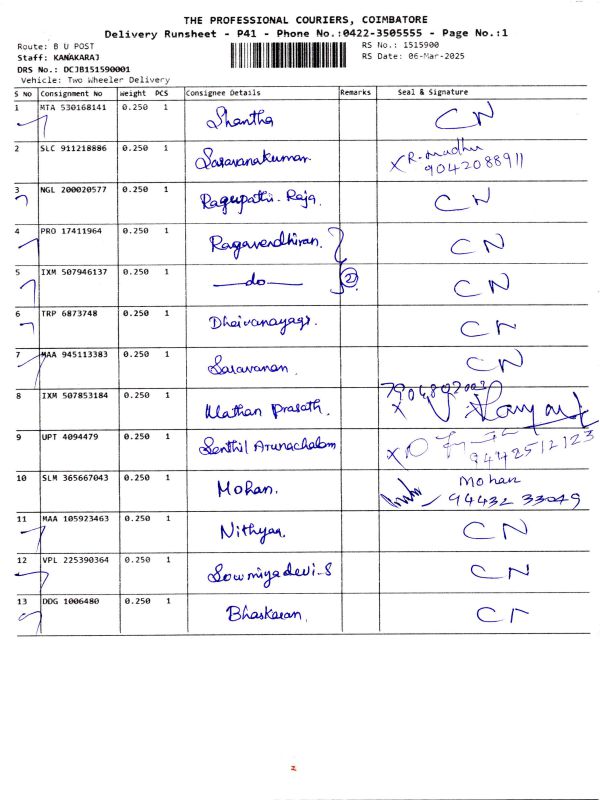 THE PROFESSIONAL COURIERS, COIMBATORE
Delivery Runsheet - P41 - Phone No.:0422-3505555 - Page No.:1
Route: B U POST RS No.: 1515900
Staff: KANAKARAJ RS Date: 06-Mar-2025
DRS No.: DCJB151590001
Vehicle: Two Wheeler Delivery
S No Consignment No Weight PCS Consignee Details Remarks Seal & Signature
1 MTA 530168141 0.250 1 Shantha CN
2 SLC 911218886 0.250 1 Saravanakumar X R. Madhu
9042088911
3 NGL 200020577 0.250 1 Ragupathi. Raja. CN
4 PRO 17411964 0.250 1 Ragavendhiran. CN
5 IXM 507946137 0.250 1 —do— 2 CN
6 TRP 6873748 0.250 1 Dheivanayagi. CN
7 MAA 945113383 0.250 1 Saravanan. CN
8 IXM 507853184 0.250 1 Mathan Prasath. X
9 UPT 4094479 0.250 1 Senthil Arunachalam X
9442512123
10 SLM 365667043 0.250 1 Mohan. Mohan
94432 33049
11 MAA 105923463 0.250 1 Nithyaa. CN
12 VPL 225390364 0.250 1 Sowmiyadevi-S CN
13 DDG 1006480 0.250 1 Bhaskaran. CN